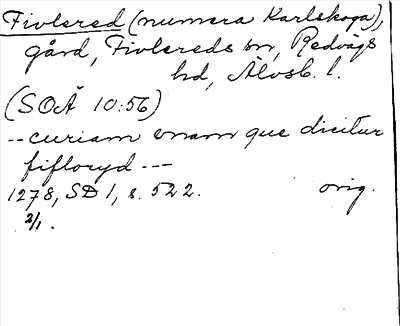 Fivlered (numera Karlskoga),
gård, Fivlereds sn, Redvägs
hd, Älvsb. l.
(SOÄ 10:56)
-- curiam unam que dicitur
fifloryd ---
1278, SD 1, s. 522. orig.
2/1.